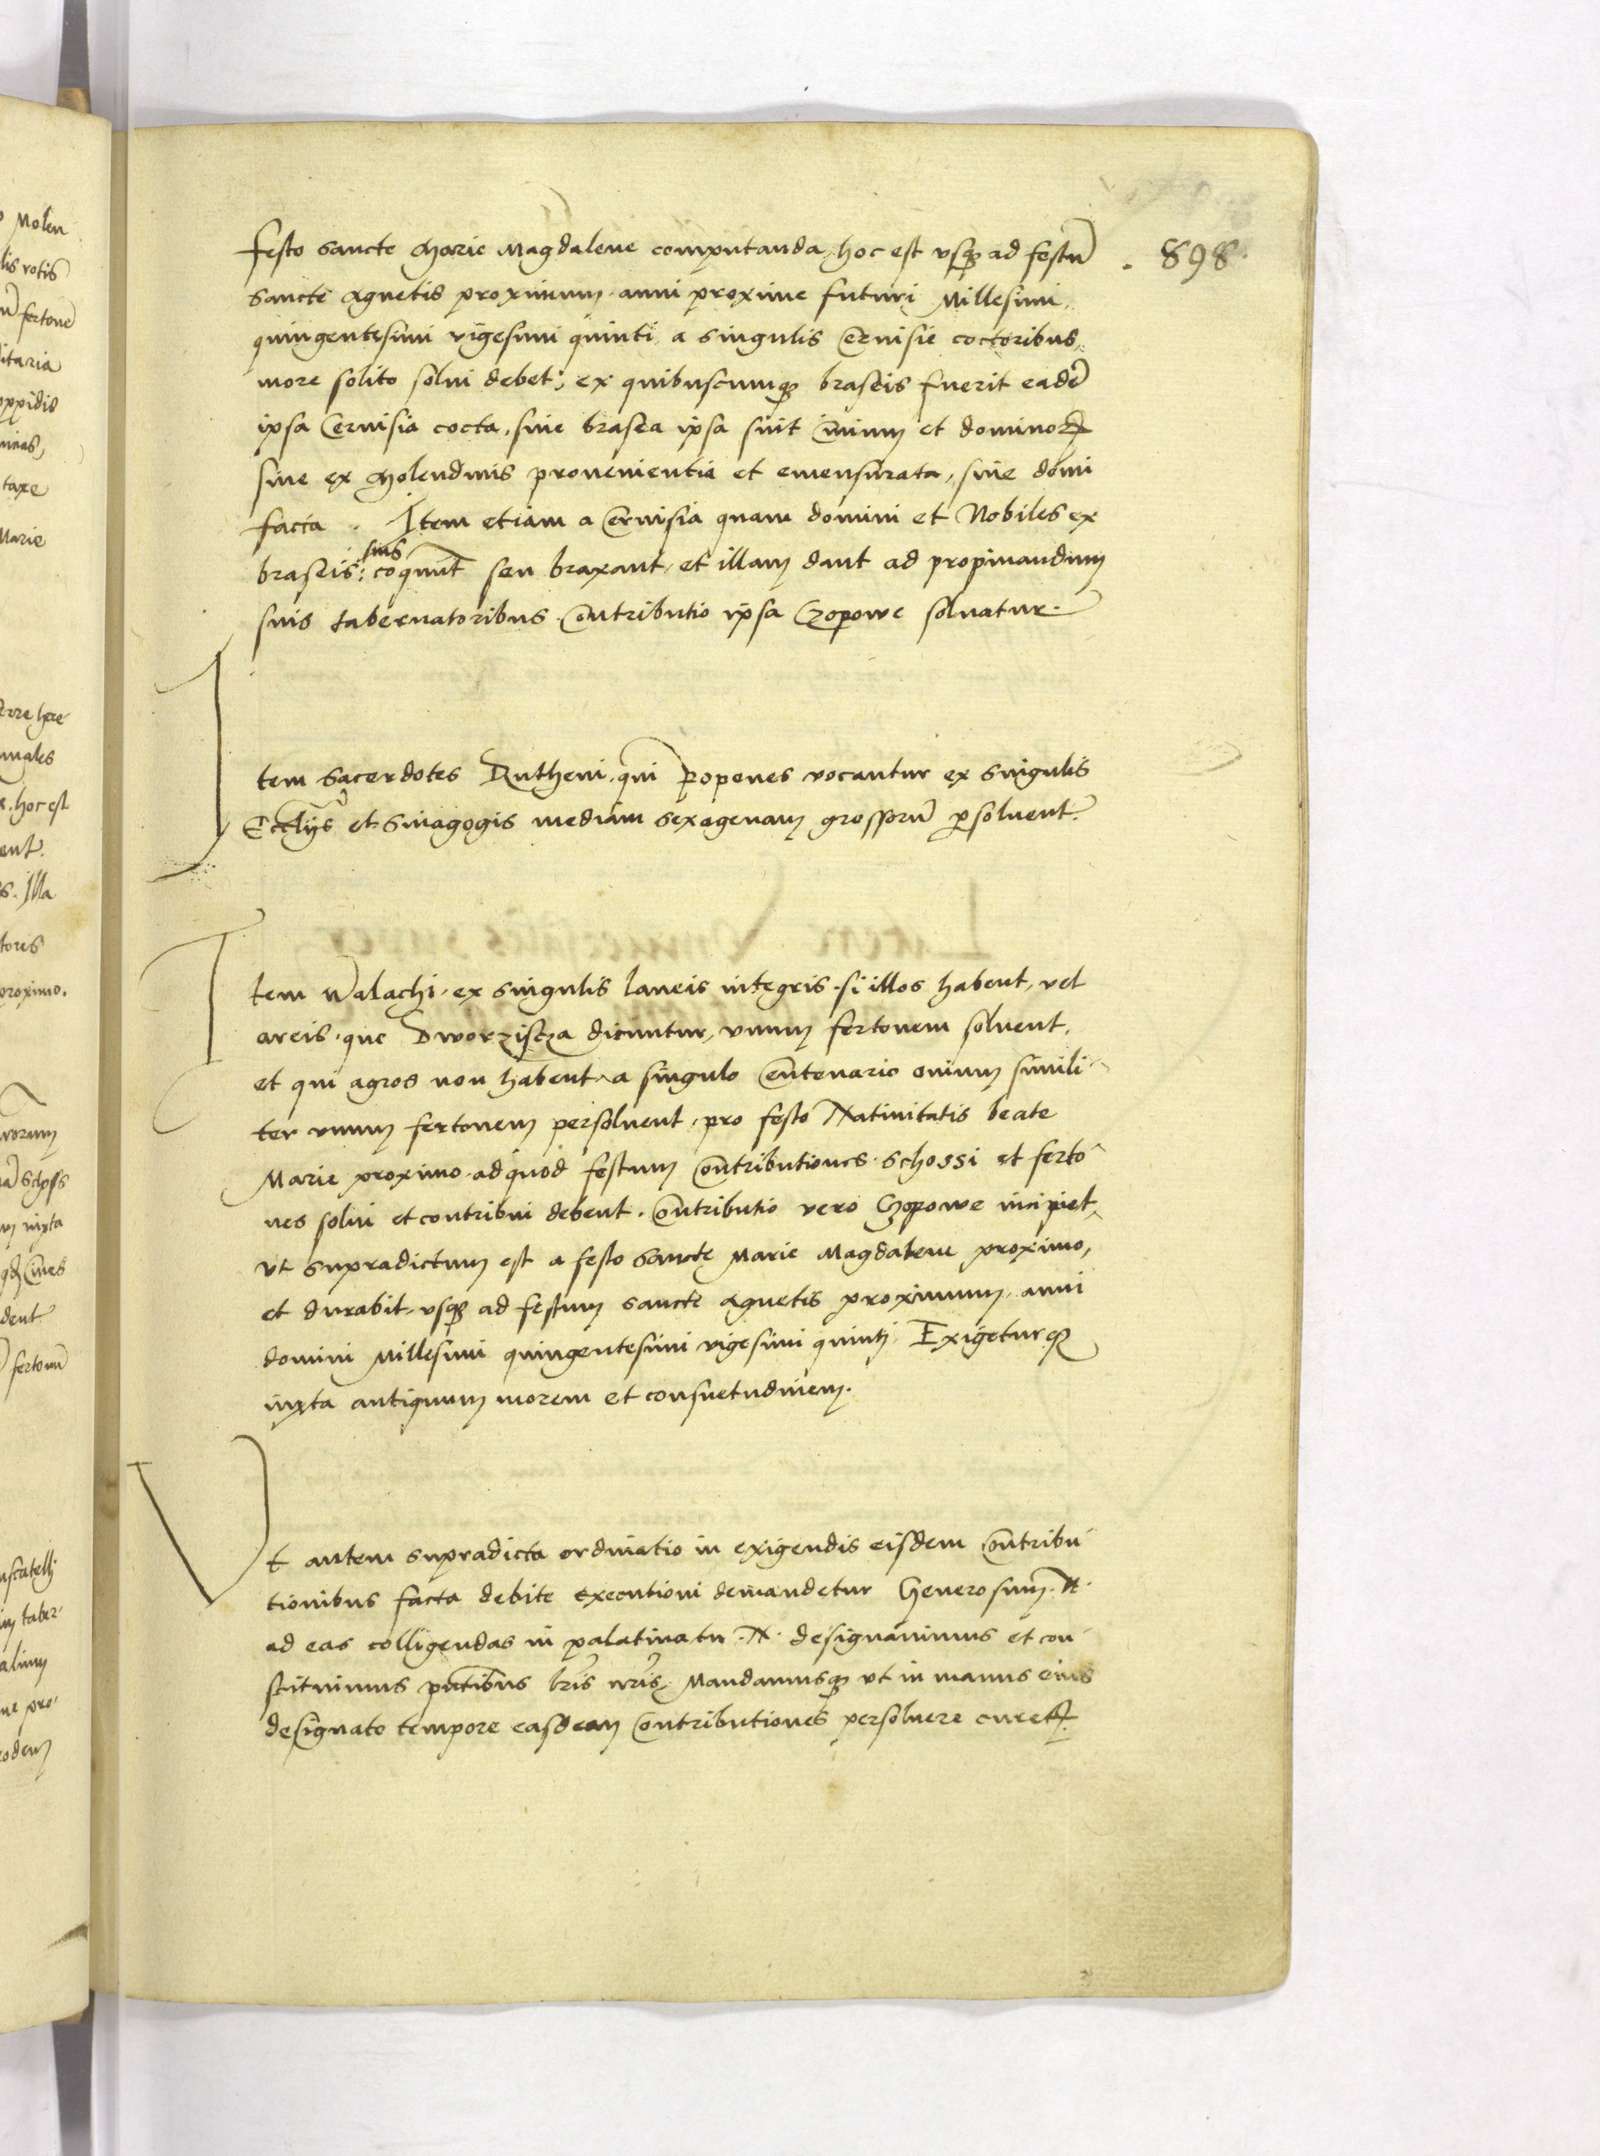 festo sancte Marie Magdalene computanda, hoc est usq3 ad festū
.898.
sancte Agnetis proximum anni proxime futuri Millesimi
quingentesimi vigesimi quinti a singulis Cervisie coctoribus
more solito solui debet; ex quibuscumq3 braseis fuerit eadē
ipsa Cervisia cocta, siue brasea ipsa sint Civium et dominoꝝ
siue ex Molendinis provenientia et emensurata, siue domi
facta. Item etiam a Cervisia quam domini et Nobiles ex
braseis suis coquunt seu braxant, et illam dant ad propinandum
suis tabernatoribus Contributio ipsa Czopowe soluatur.
Item Sacerdotes Rutheni, qui Popones vocantur ex singulis
Eccliis et Sinagogis mediam sexagenam grossorū persoluent.
Item Walachi, ex singulis laneis integris si illos habent, vel
areis, que Dworziscza dicuntur, unum fertonem soluent,
et qui agros non habent a singulo Centenario ovium simili
ter unum fertonem persoluent, pro festo Nativitatis beate
Marie proximo ad quod festum Contributiones Schossi et ferto
nes solui et contribui debent. Contributio vero Czopowe incipiet
ut supradictum est a festo Sancte Marie Magdalene proximo,
et durabit usq3 ad festum sancte Agnetis proximum anni
domini Millesimi quingentesimi vigesimi quinti. Exigeturq3
iuxta antiquum morem et consuetudinem.
Ut autem supradicta ordinatio in exigendis eisdem Contribu
tionibus facta debite executioni demandetur Generosum .N.
ad eas colligendas in palatinatu .N. designauimus et con
stituimus pntibus lris nris, Mandamusq3 ut in manus eius
designato tempore easdem Contributiones persoluere cureꝝ